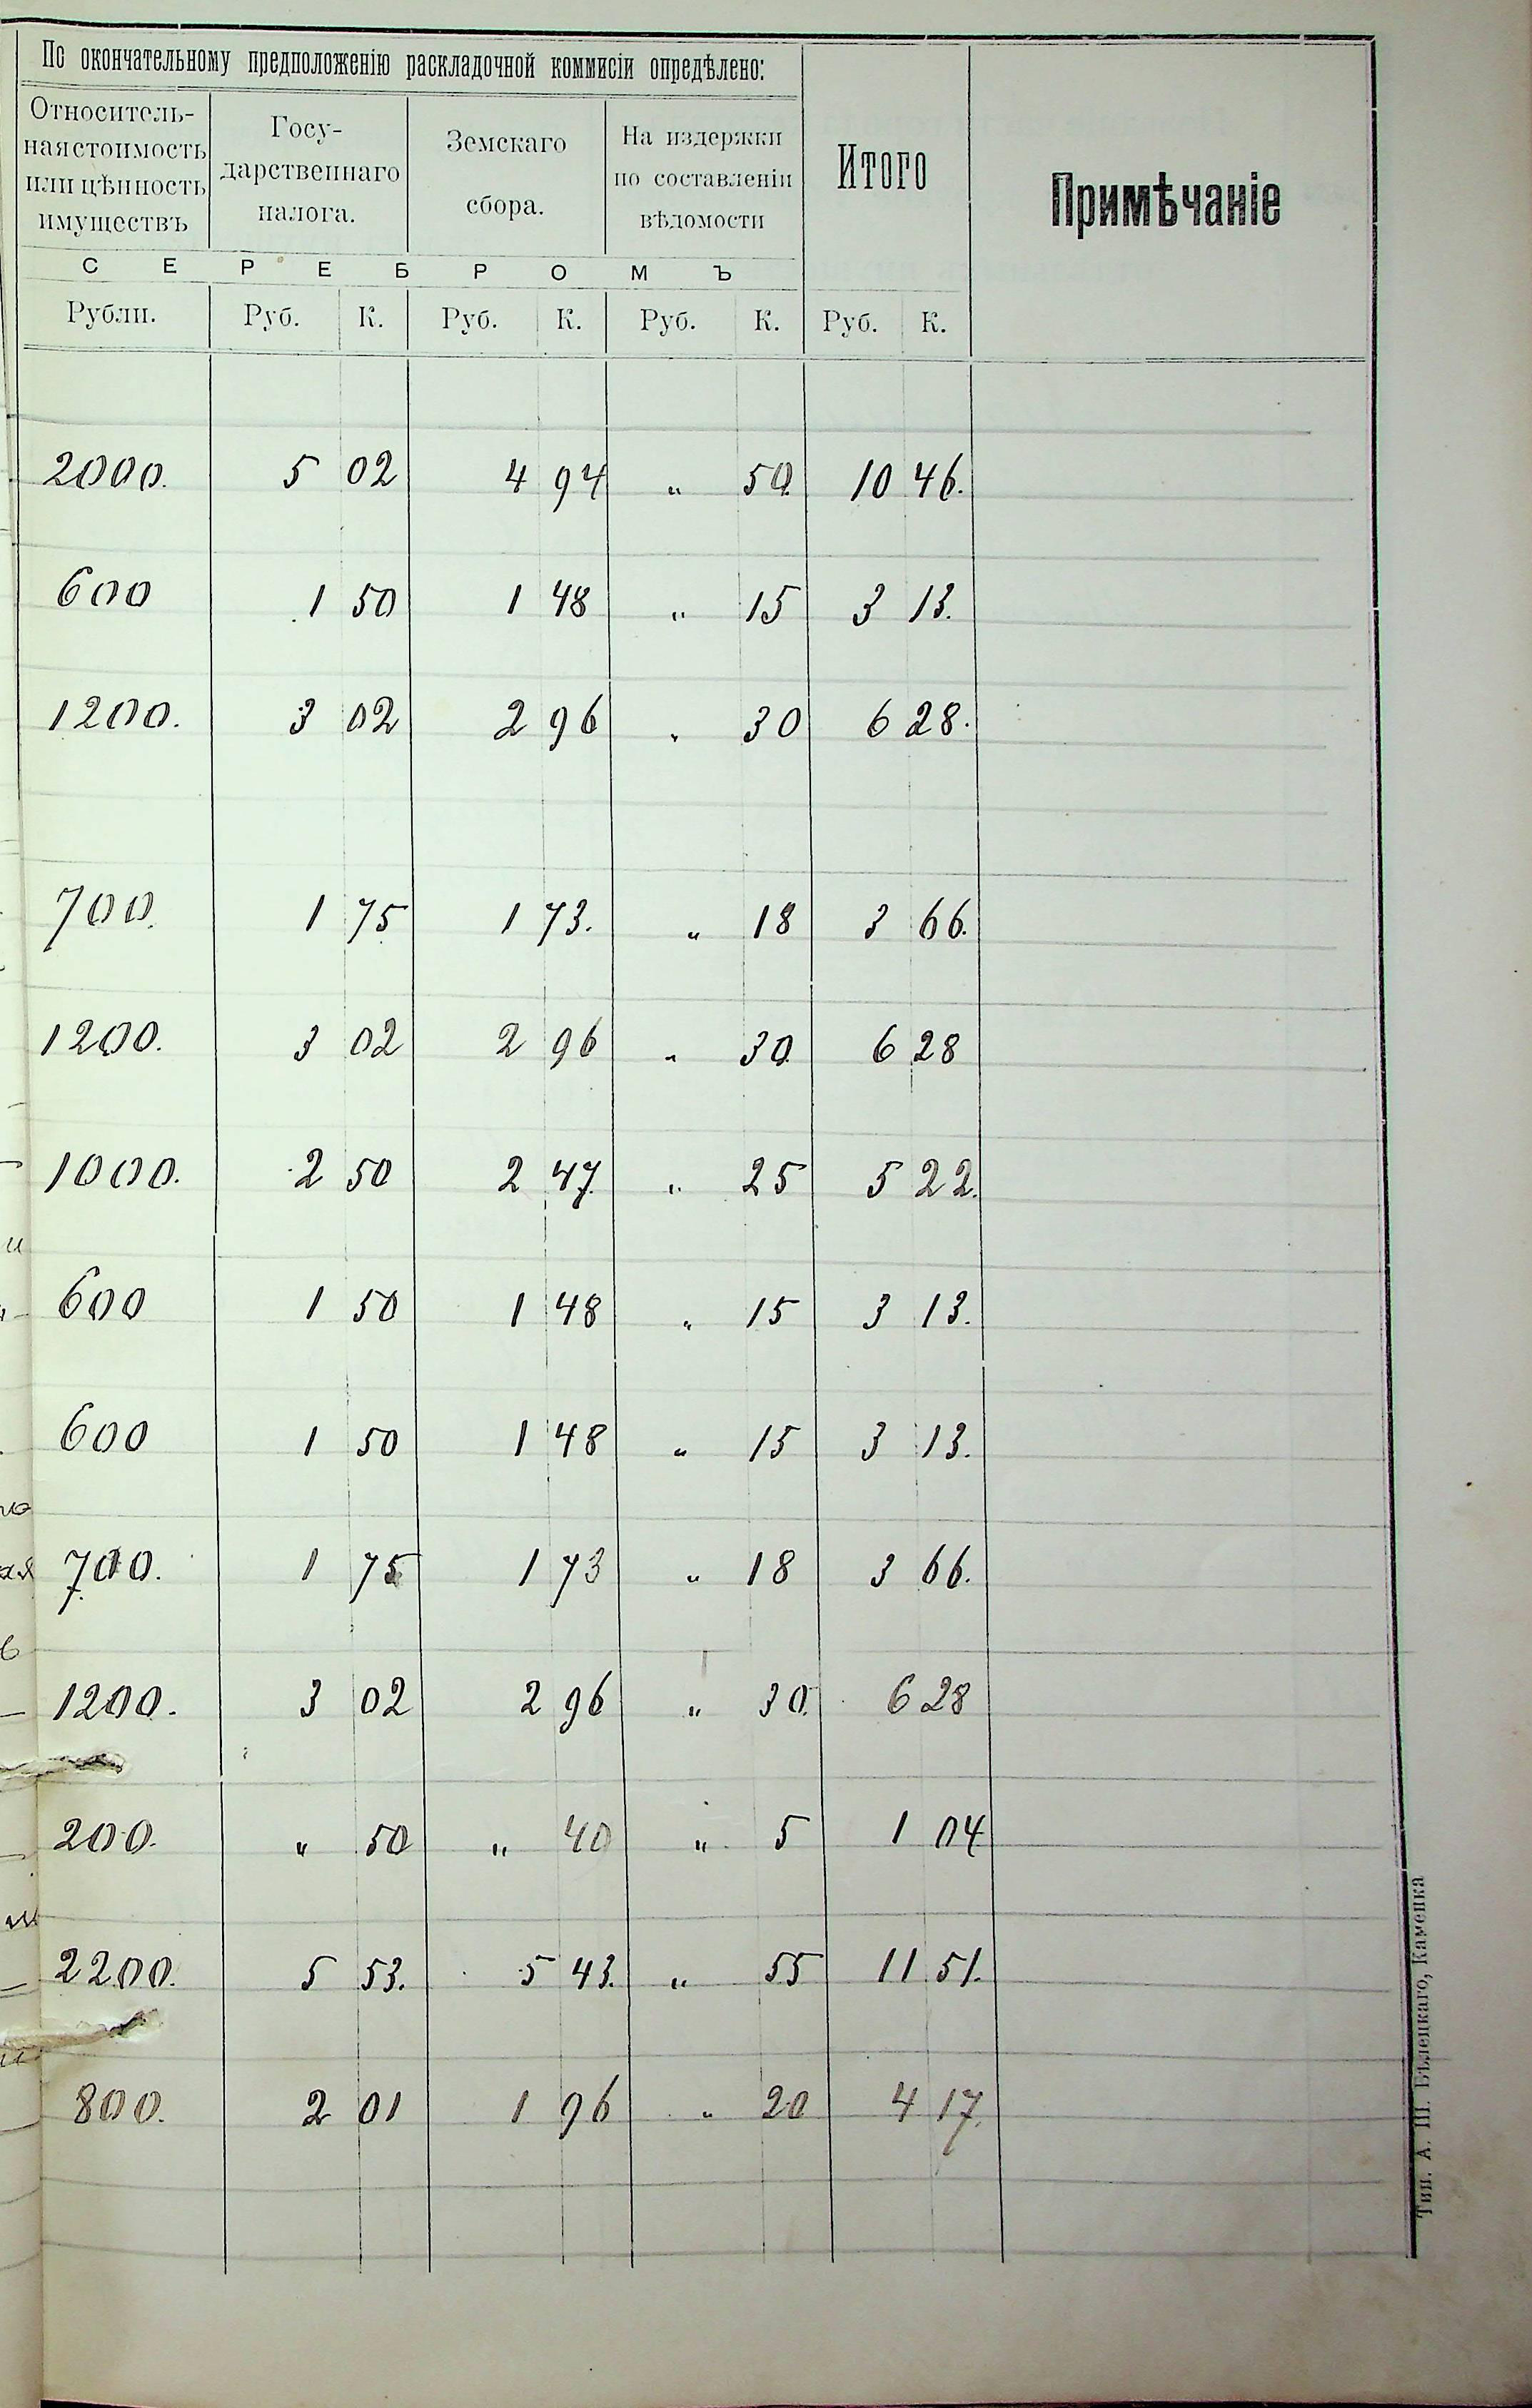 По окончательному предположенію раскладочной коммисіи опредѣлено:
Относитель-
ная стоимость
или цѣнность
имуществъ
Госу-
дарственнаго
налога.
Земскаго
сбора.
На издержки
по составленіи
вѣдомости
Итого
Примѣчаніе
С Е Р Е Б Р О М Ъ
Рубли. Руб. К. Руб. К. Руб. К. Руб. К.
2000. 5 02 4 94 " 50. 10 46.
600 1 50 1 48 " 15 3 13.
1200. 3 02 2 96 " 30 6 28.
700. 1 75 1 73. " 18 3 66.
1200. 3 02 2 96 " 30. 6 28
1000. 2 50 2 47. " 25 5 22.
600 1 50 1 48 " 15 3 13.
600 1 50 1 48 " 15 3 13.
700. 1 75 1 73 " 18 3 66.
1200. 3 02 2 96 " 30. 6 28
200. " 50 " 40 " 5 1 04
2200. 5 53. 5 43. " 55 11 51.
800. 2 01 1 96 " 20 4 17.
Тип. А. Ш. Бѣлецкаго, Каменка